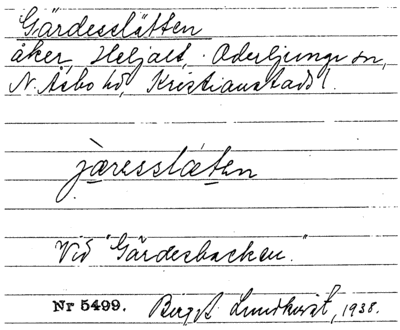 Gärdesslätten
åker, Heljalt, Oderljunga sn,
N. Åsbo hd, Kristianstads l.
jæresslæten
Vid "Gärdesbacken."
Nr 5499. Bengt Lundkvist, 1938.